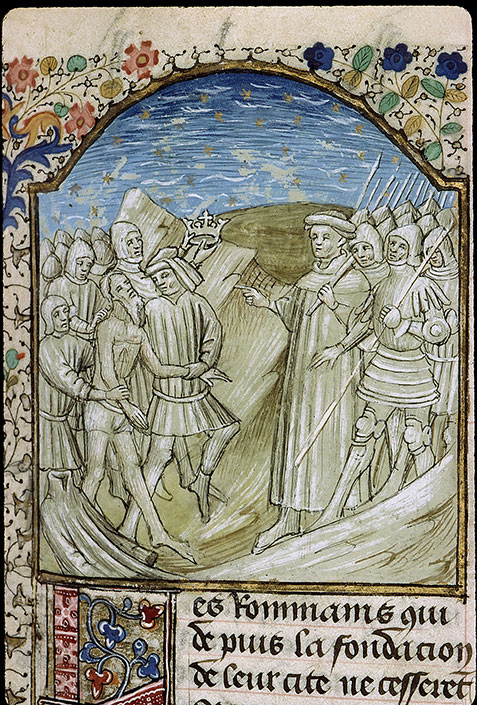 es Rommains qui
de puis la fondacion
de leur cite ne cesseret